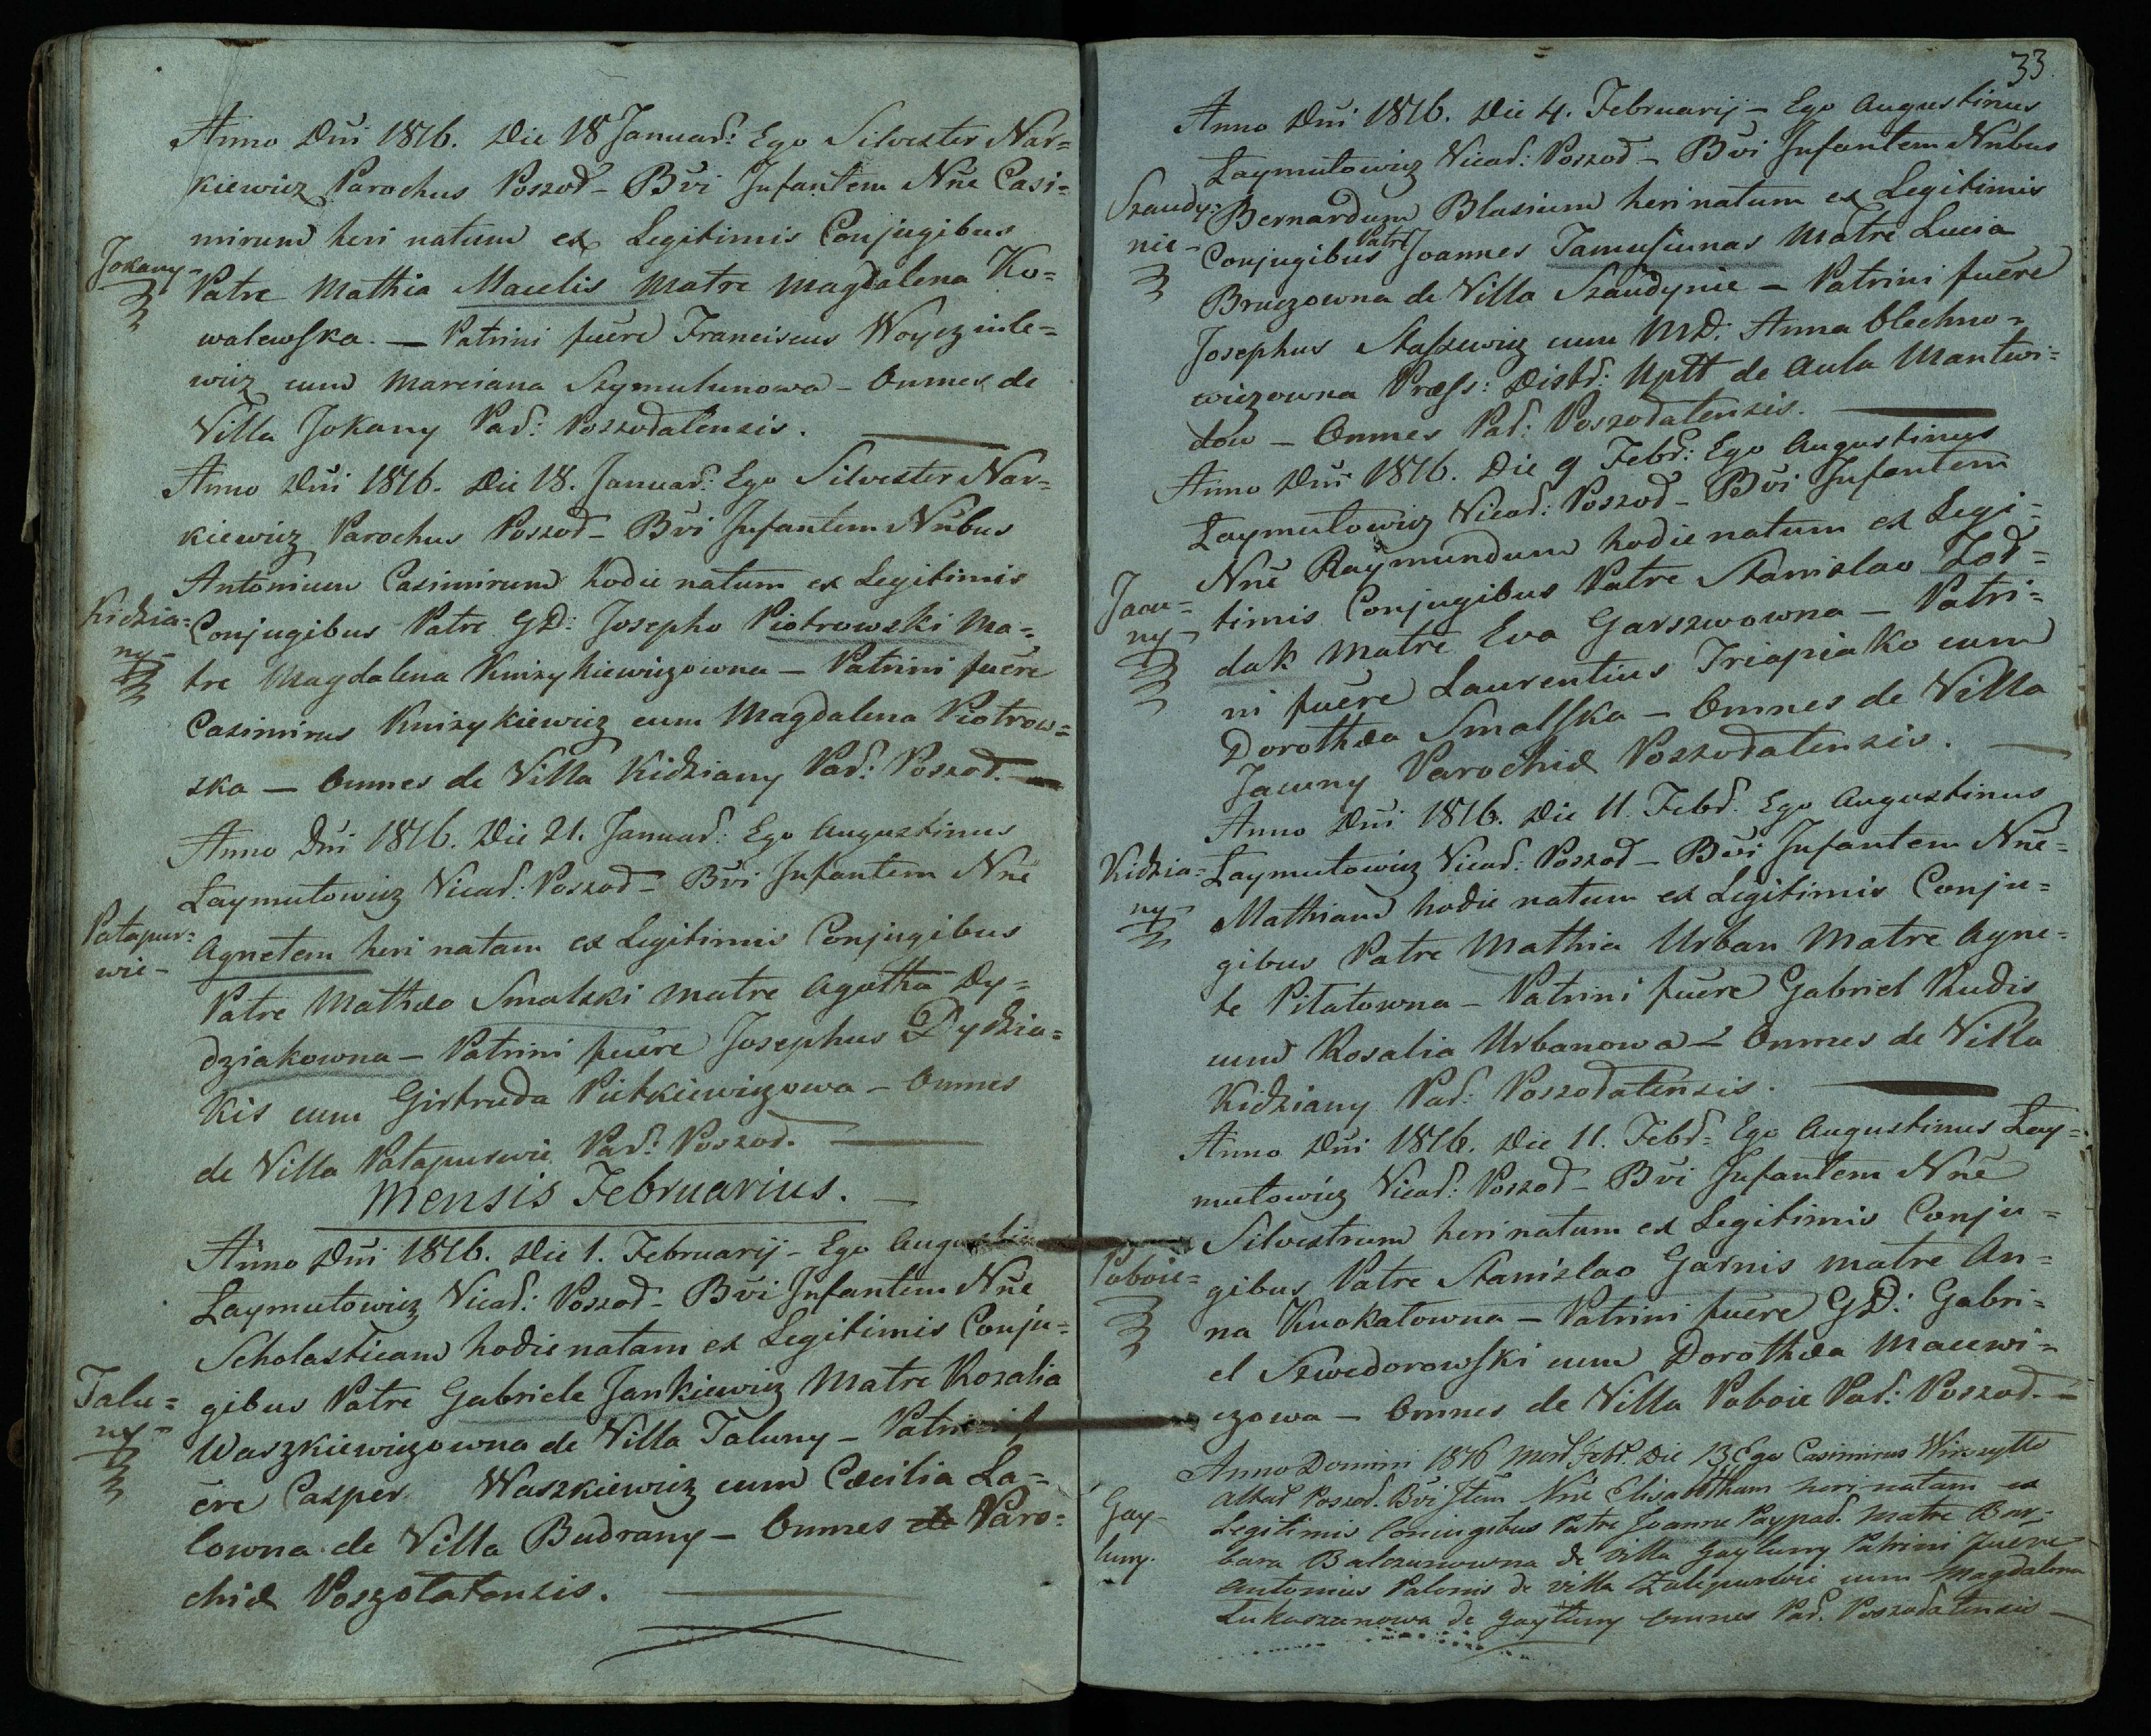 Anno Dni 1816. Die 18 Januar: Ego Silvester Nar=
kiewicz Parochus Poszod- Bvi Infantem Nne Casi=
mirum heri natum ex Legitimis Conjugibus
Jokany-
Patre Mathia Macelis Matre Magdalena Ko=
walewska. — Patrini fuere Franciscus Woyczule=
wicz cum Marciana Szymulunowa - Omnes de
Villa Jokany Par: Poszodatensis.
Anno Dni 1816. Die 18. Januar: Ego Silvester Nar=
kiewicz Parochus Poszod- Bvi Infantem Nnbus
Antonium Casimirum hodie natum ex Legitimis
Kidzia=
ny-
Conjugibus Patre GD: Josepho Piotrowski Ma=
tre Magdalena Knizykiewiczowna — Patrini fuere
Casimirus Knizykiewicz cum Magdalena Piotrow=
ska — Omnes de Villa Kidziany Par: Poszod.
Anno Dni 1816. Die 21. Januar: Ego Augustinus
Laymutowicz Vicar: Poszod- Bvi Infantem Nne
Patapur=
wie-
Agnetem heri natam ex Legitimis Conjugibus
Patre Matheo Smalski Matre Agatha Dy=
dziakowna — Patrini fuere Josephus Dydzia=
kis cum Girtruda Pietkiewiczowa — Omnes
de Villa Patapurwie Par: Poszod.
Mensis Februarius.
Anno Dni 1816. Die 1. Februarij - Ego
Laymutowicz Vicar: Poszod- Bvi Infantem Nne
Scholasticam hodie natam ex Legitimis Conju=
Talu=
ny-
gibus Patre Gabriele Jankiewicz Matre Rosalia
Waszkiewiczowna de Villa Taluny —
ere Casper Waszkiewicz cum Cæcilia La=
lowna de Villa Budrany — Omnes de Paro=
chiæ Poszotatensis.
33.
Anno Dni 1816. Die 4. Februarij - Ego Augustinus
Laymutowicz Vicar: Poszod- Bvi Infantem Nnbus
Szaudy:
nie-
Bernardum Blasium heri natum ex Legitimis
Conjugibus Patre Joannes Tamusiunas Matre Lucia
Bruczowna de Villa Szaudynie — Patrini fuere
Josephus Staszewicz cum MD: Anna Olechno=
wiczowna Præss: Distr: Uptt de Aula Mantwi=
dow — Omnes Par: Poszodatensis.
Anno Dni 1816. Die 9 Febr: Ego Augustinus
Laymutowicz Vicar: Poszod- Bvi Infantem
Jacu=
ny-
Nne Raymundum hodie natum ex Legi=
timis Conjugibus Patre Stanislao Zod=
dak Matre Eva Garszwowna — Patri=
ni fuere Laurentius Triapiako cum
Dorothea Smalska — Omnes de Villa
Jacuny Parochiæ Poszodatensis.
Anno Dni 1816. Die 11. Febr: Ego Augustinus
Kidzia=
ny-
Laymutowicz Vicar: Poszod- Bvi Infantem Nne-
Mathiam hodie natum ex Legitimis Conju=
gibus Patre Mathia Urban Matre Agne=
te Pitatowna — Patrini fuere Gabriel Rudis
cum Rosalia Urbanowa — Omnes de Villa
Kidziany Par: Poszodatensis.
Anno Dni 1816. Die 11. Febr: Ego Augustinus Lay=
mutowicz Vicar: Poszod- Bvi Infantem Nne
Silvestrum heri natum ex Legitimis Conju=
Poboie=
gibus Patre Stanislao Garnis Matre An=
na Knokatowna — Patrini fuere GD: Gabri=
el Szwedorowski cum Dorothea Macewi=
czowa — Omnes de Villa Poboie Par: Poszod.-
Anno Domini 1816 Febr. Die 13 Ego Casimirus Wirszytto
Altar Poszod. Bvi Nne Elisabetham heri natam ex
Gay-
luny.
Legitimis Coniugibus Patre Joanne Matre Bar-
bara Balczunowna de Villa Gayluny Patrini fuere
Antonius Palonis de villa Zalepurwie cum Magdalena
Lukaszunowa de Gayluny Omnes Par. Poszodatensis